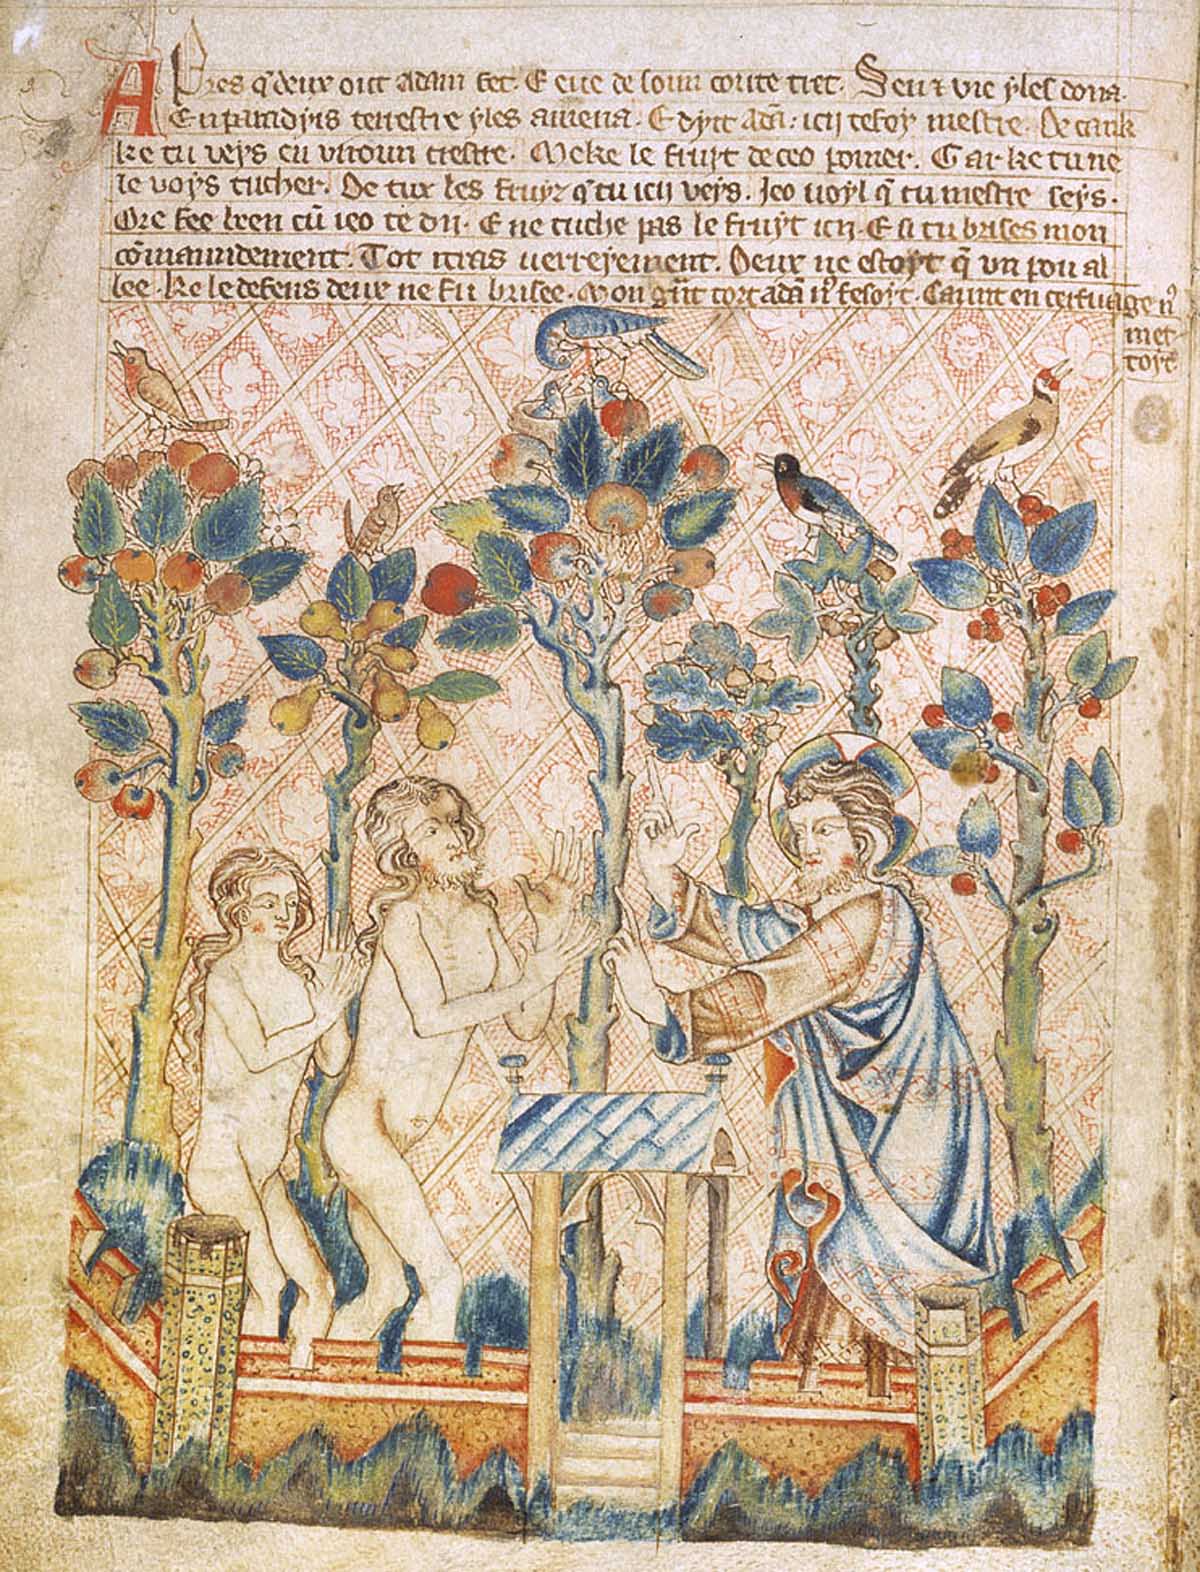 Apres q̄ deux out adam fet. E eue de soun coute tret. Sen ⁊ vie y les dona.
En paradyis terrestre y les amena. E dyit adā: icy te foy mestre. De cank
ke tu veys en viroun tiestre. Meke le fruyt de ceo pomer. Gar ke tu ne
le voys tucher. De tux les fruyz q̄ tu icy veys. Jeo uoyl q̄ tu mestre seys.
Ore fee bien cū ieo te di. E ne tuche pas le fruyt icy. E si tu brises mon
cōmaundement. Tot murras uerreyement. Deux ne estoyt q̄ un pou al
lee. ke le defens deux ne fu brisee. Mon gūt tort adā n' fesoyt. Caunt en ceruage n'
met
toyt